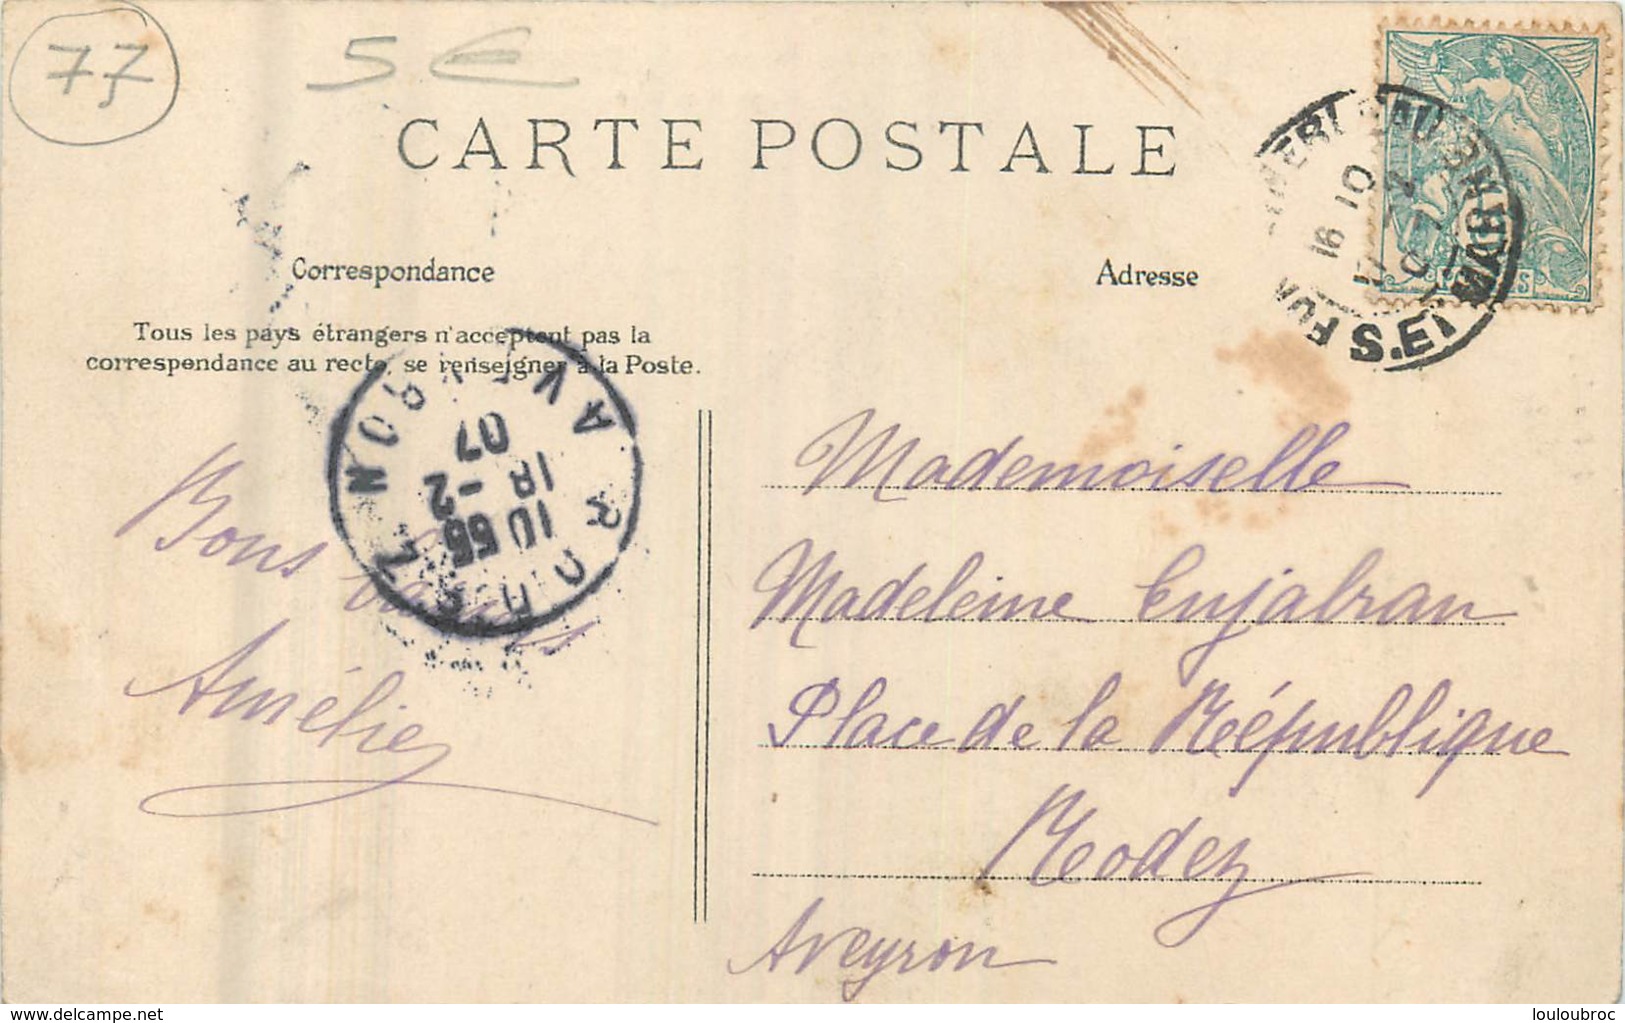 77
5€
CARTE POSTALE
Correspondance
Adresse
Tous les pays étrangers n'acceptent pas la
correspondance au recto, se renseigner à la Poste.
16 10
S. ET MARNE
AVEYRON
07
18 -2
10 55
RODEZ
Bons baisers
Amélie
Mademoiselle
Madeleine Cujabran
Place de la République
Rodez
Aveyron
delcampe.net
louloubroc